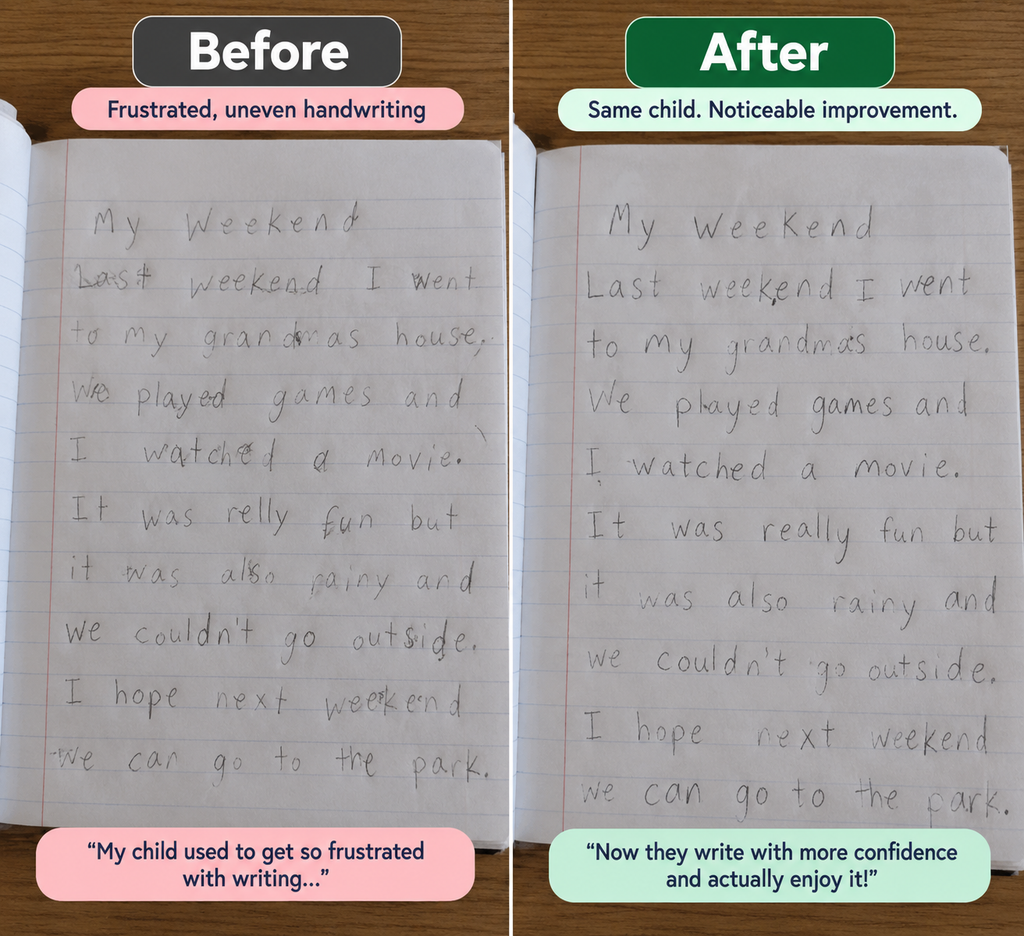 Before
Frustrated, uneven handwriting
My Weekend
Last weekend I went
to my grandmas house.
We played games and
I watched a movie.
It was relly fun but
it was also rainy and
we couldn't go outside.
I hope next weekend
we can go to the park.
“My child used to get so frustrated
with writing...”
After
Same child. Noticeable improvement.
My Weekend
Last weekend I went
to my grandmas house.
We played games and
I watched a movie.
It was really fun but
it was also rainy and
we couldn't go outside.
I hope next weekend
we can go to the park.
“Now they write with more confidence
and actually enjoy it!”